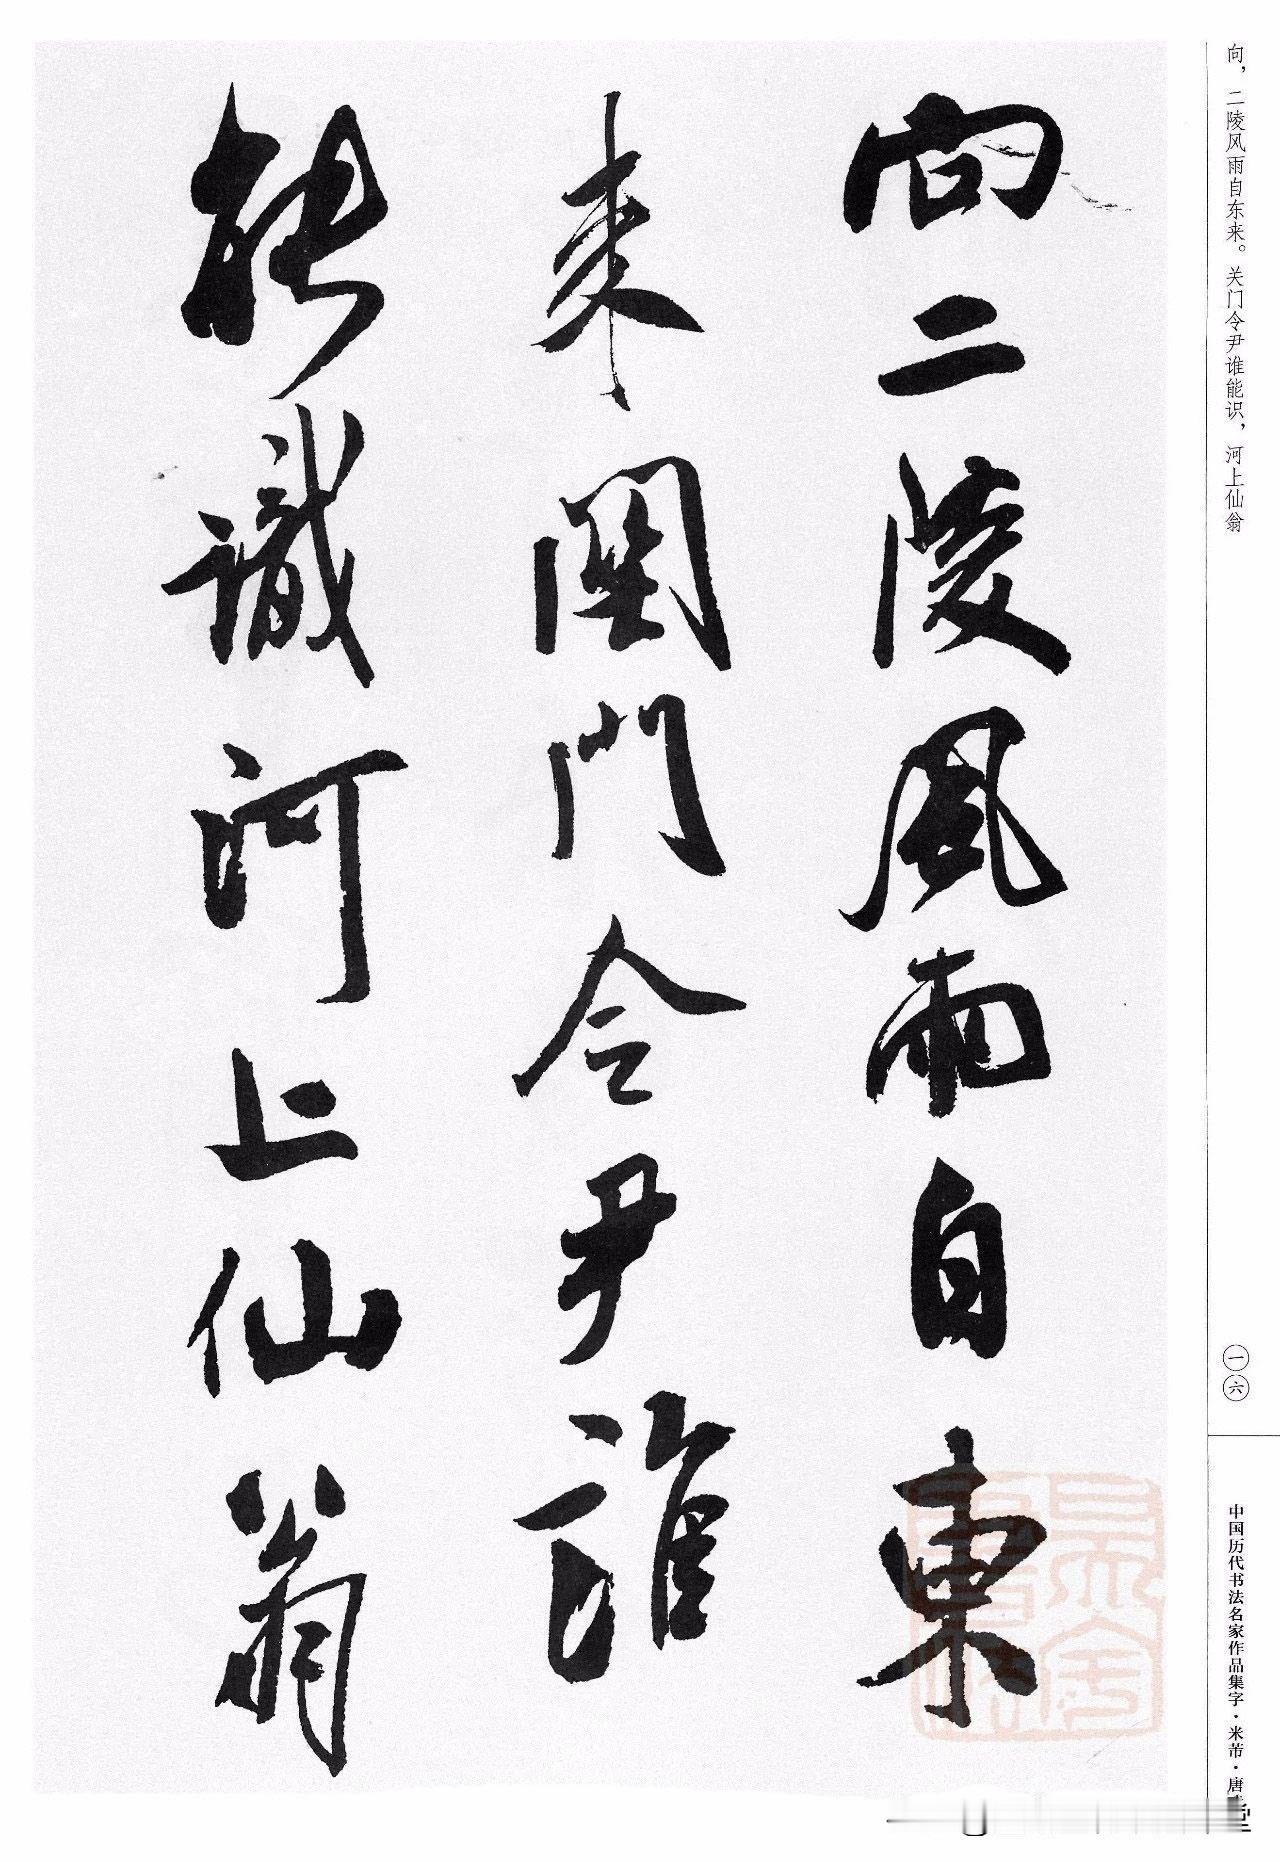 向，二陵风雨自东来。关门令尹谁能识，河上仙翁
向二陵風雨自東
来關門令尹誰
能識河上仙翁
一六
中国历代书法名家作品集字·米芾·唐